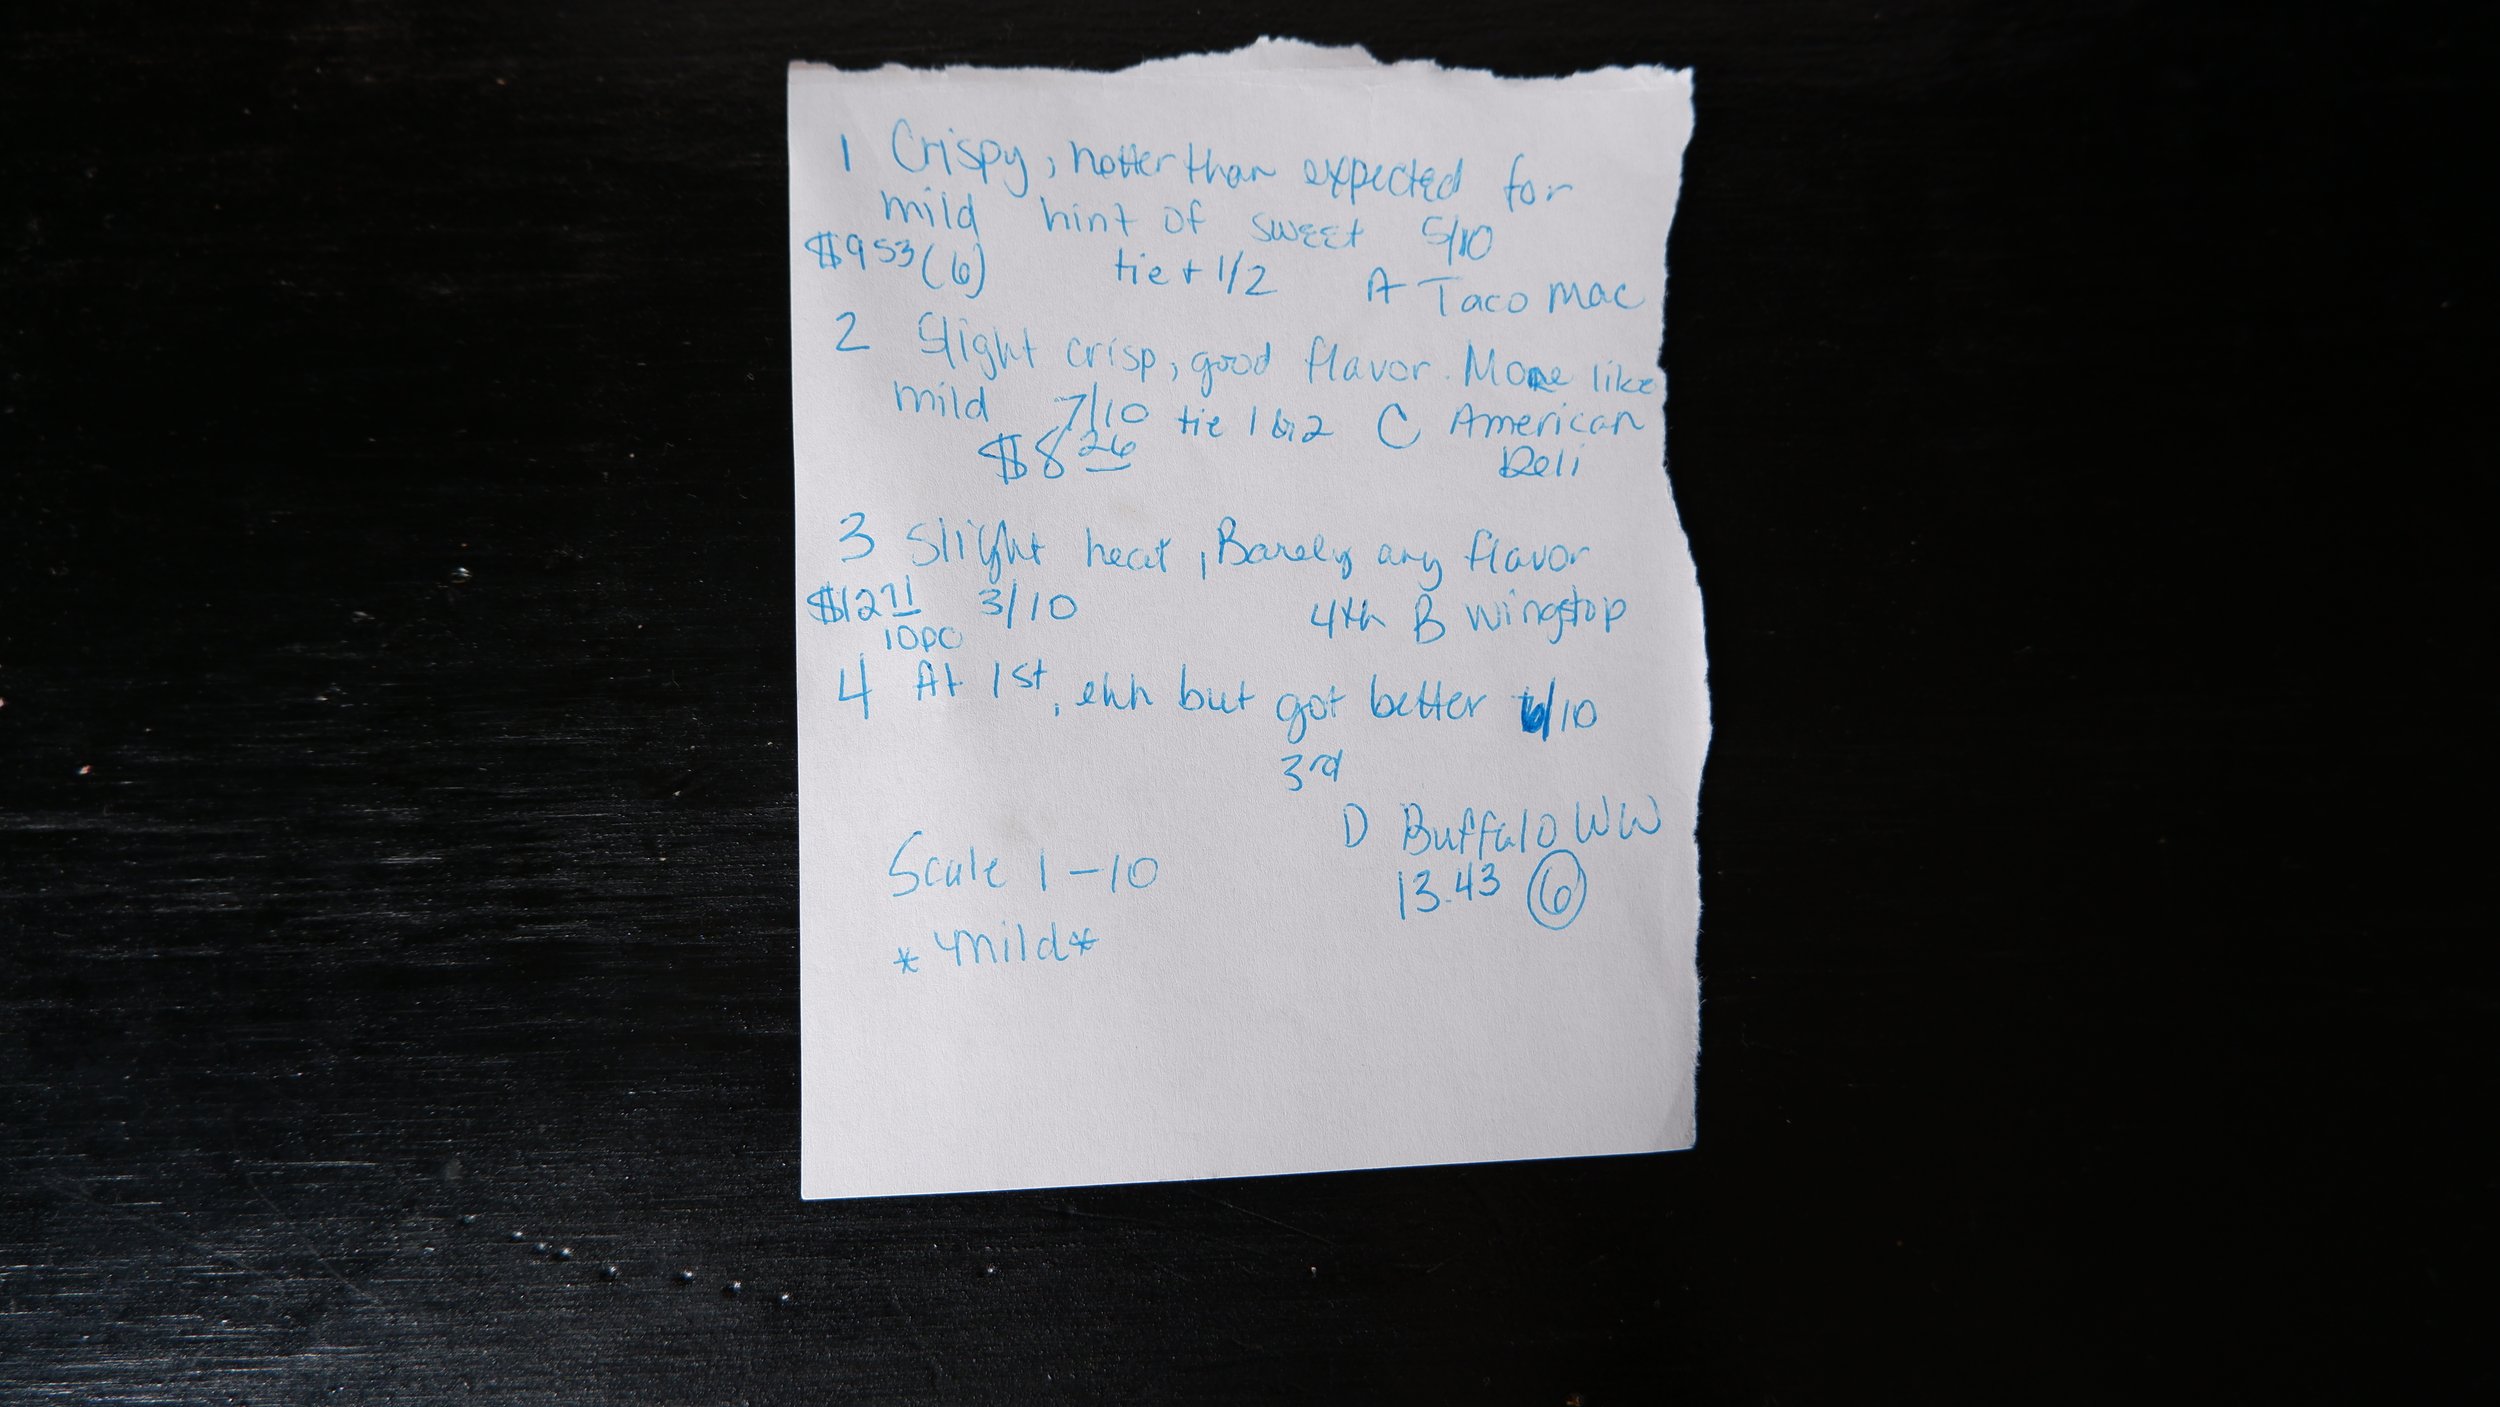 1 Crispy, hotter than expected for
mild hint of sweet 5/10
$9 53 (6) tie + 1/2 A Taco Mac
2 Slight crisp, good flavor. More like
mild 7/10 tie 1 & 2 C American
$8 26 Deli
3 Slight heat, Barely any flavor
$12 71 3/10 4th B Wingstop
10pc
4 At 1st, ehh but got better 6/10
3rd
D Buffalo WW
Scale 1-10 13.43 6
*mild*